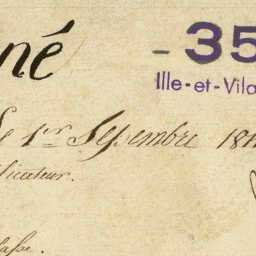 né
- 35
Ille-et-Vila
Le 1er Sepembre 181
licateur.